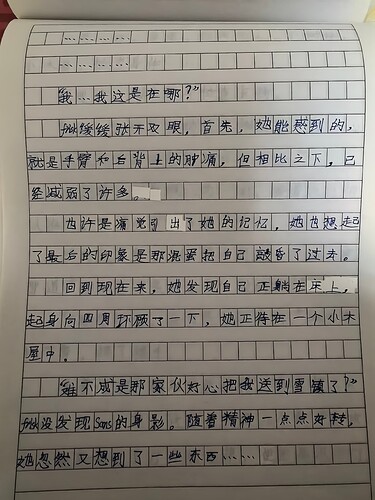 ……
……
“我…我这是在哪？”
frisk缓缓张开双眼，首先，她能感到的，
就是手臂和后背上的肿痛，但相比之下，已
经减弱了许多。
也许是痛觉引出了她的记忆，她也想起
了最后的印象是那混蛋把自己敲昏了过去。
回到现在来，她发现自己正躺在床上，
起身向四周环顾了一下，她正待在一个小木
屋中。
“难不成是那家伙好心把我送到雪镇了？”
frisk没发现Sans的身影。随着精神一点点好转，
她忽然又想到了一些东西……